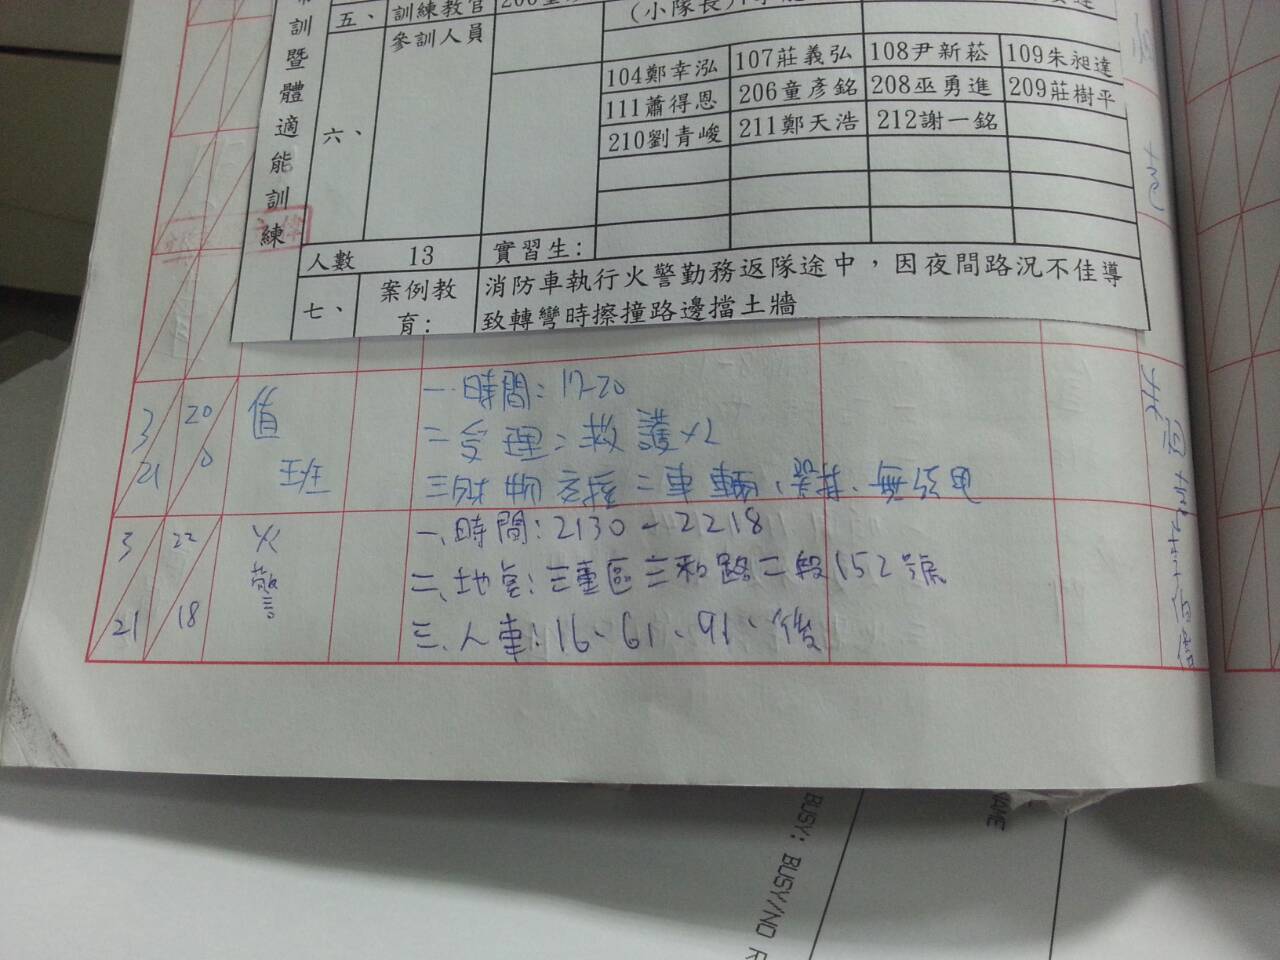 訓暨體適能訓練
五、 訓練教官
(小隊長)
六、 參訓人員
104鄭幸泓 107莊義弘 108尹新菘 109朱昶達
111蕭得恩 206童彥銘 208巫勇進 209莊樹平
210劉青峻 211鄭天浩 212謝一銘
人數 13 實習生:
七、 案例教育: 消防車執行火警勤務返隊途中，因夜間路況不佳導
致轉彎時擦撞路邊擋土牆
3 20 值班 一.時間:17-20
21 0 二受理:救護x2
三財物交接:車輛、器材、無線電
3 22 火警 一、時間:2130-2218
21 18 二、地点:三重區三和路二段152號
三、人車:16、61、91、後
BUSY: BUSY/NO R
NAME